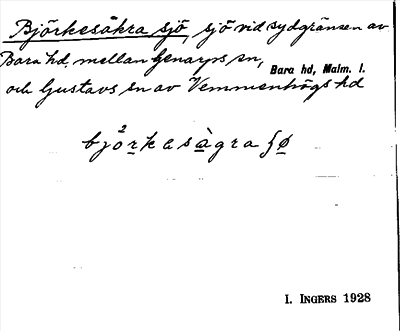 Björkesåkra sjö, sjö vid sydgränsen av
Bara hd. mellan Genarps sn,
Bara hd, Malm. l.
och Gustavs sn av Vemmenhögs hd
bjò²rkesàgra ʃø
I. INGERS 1928